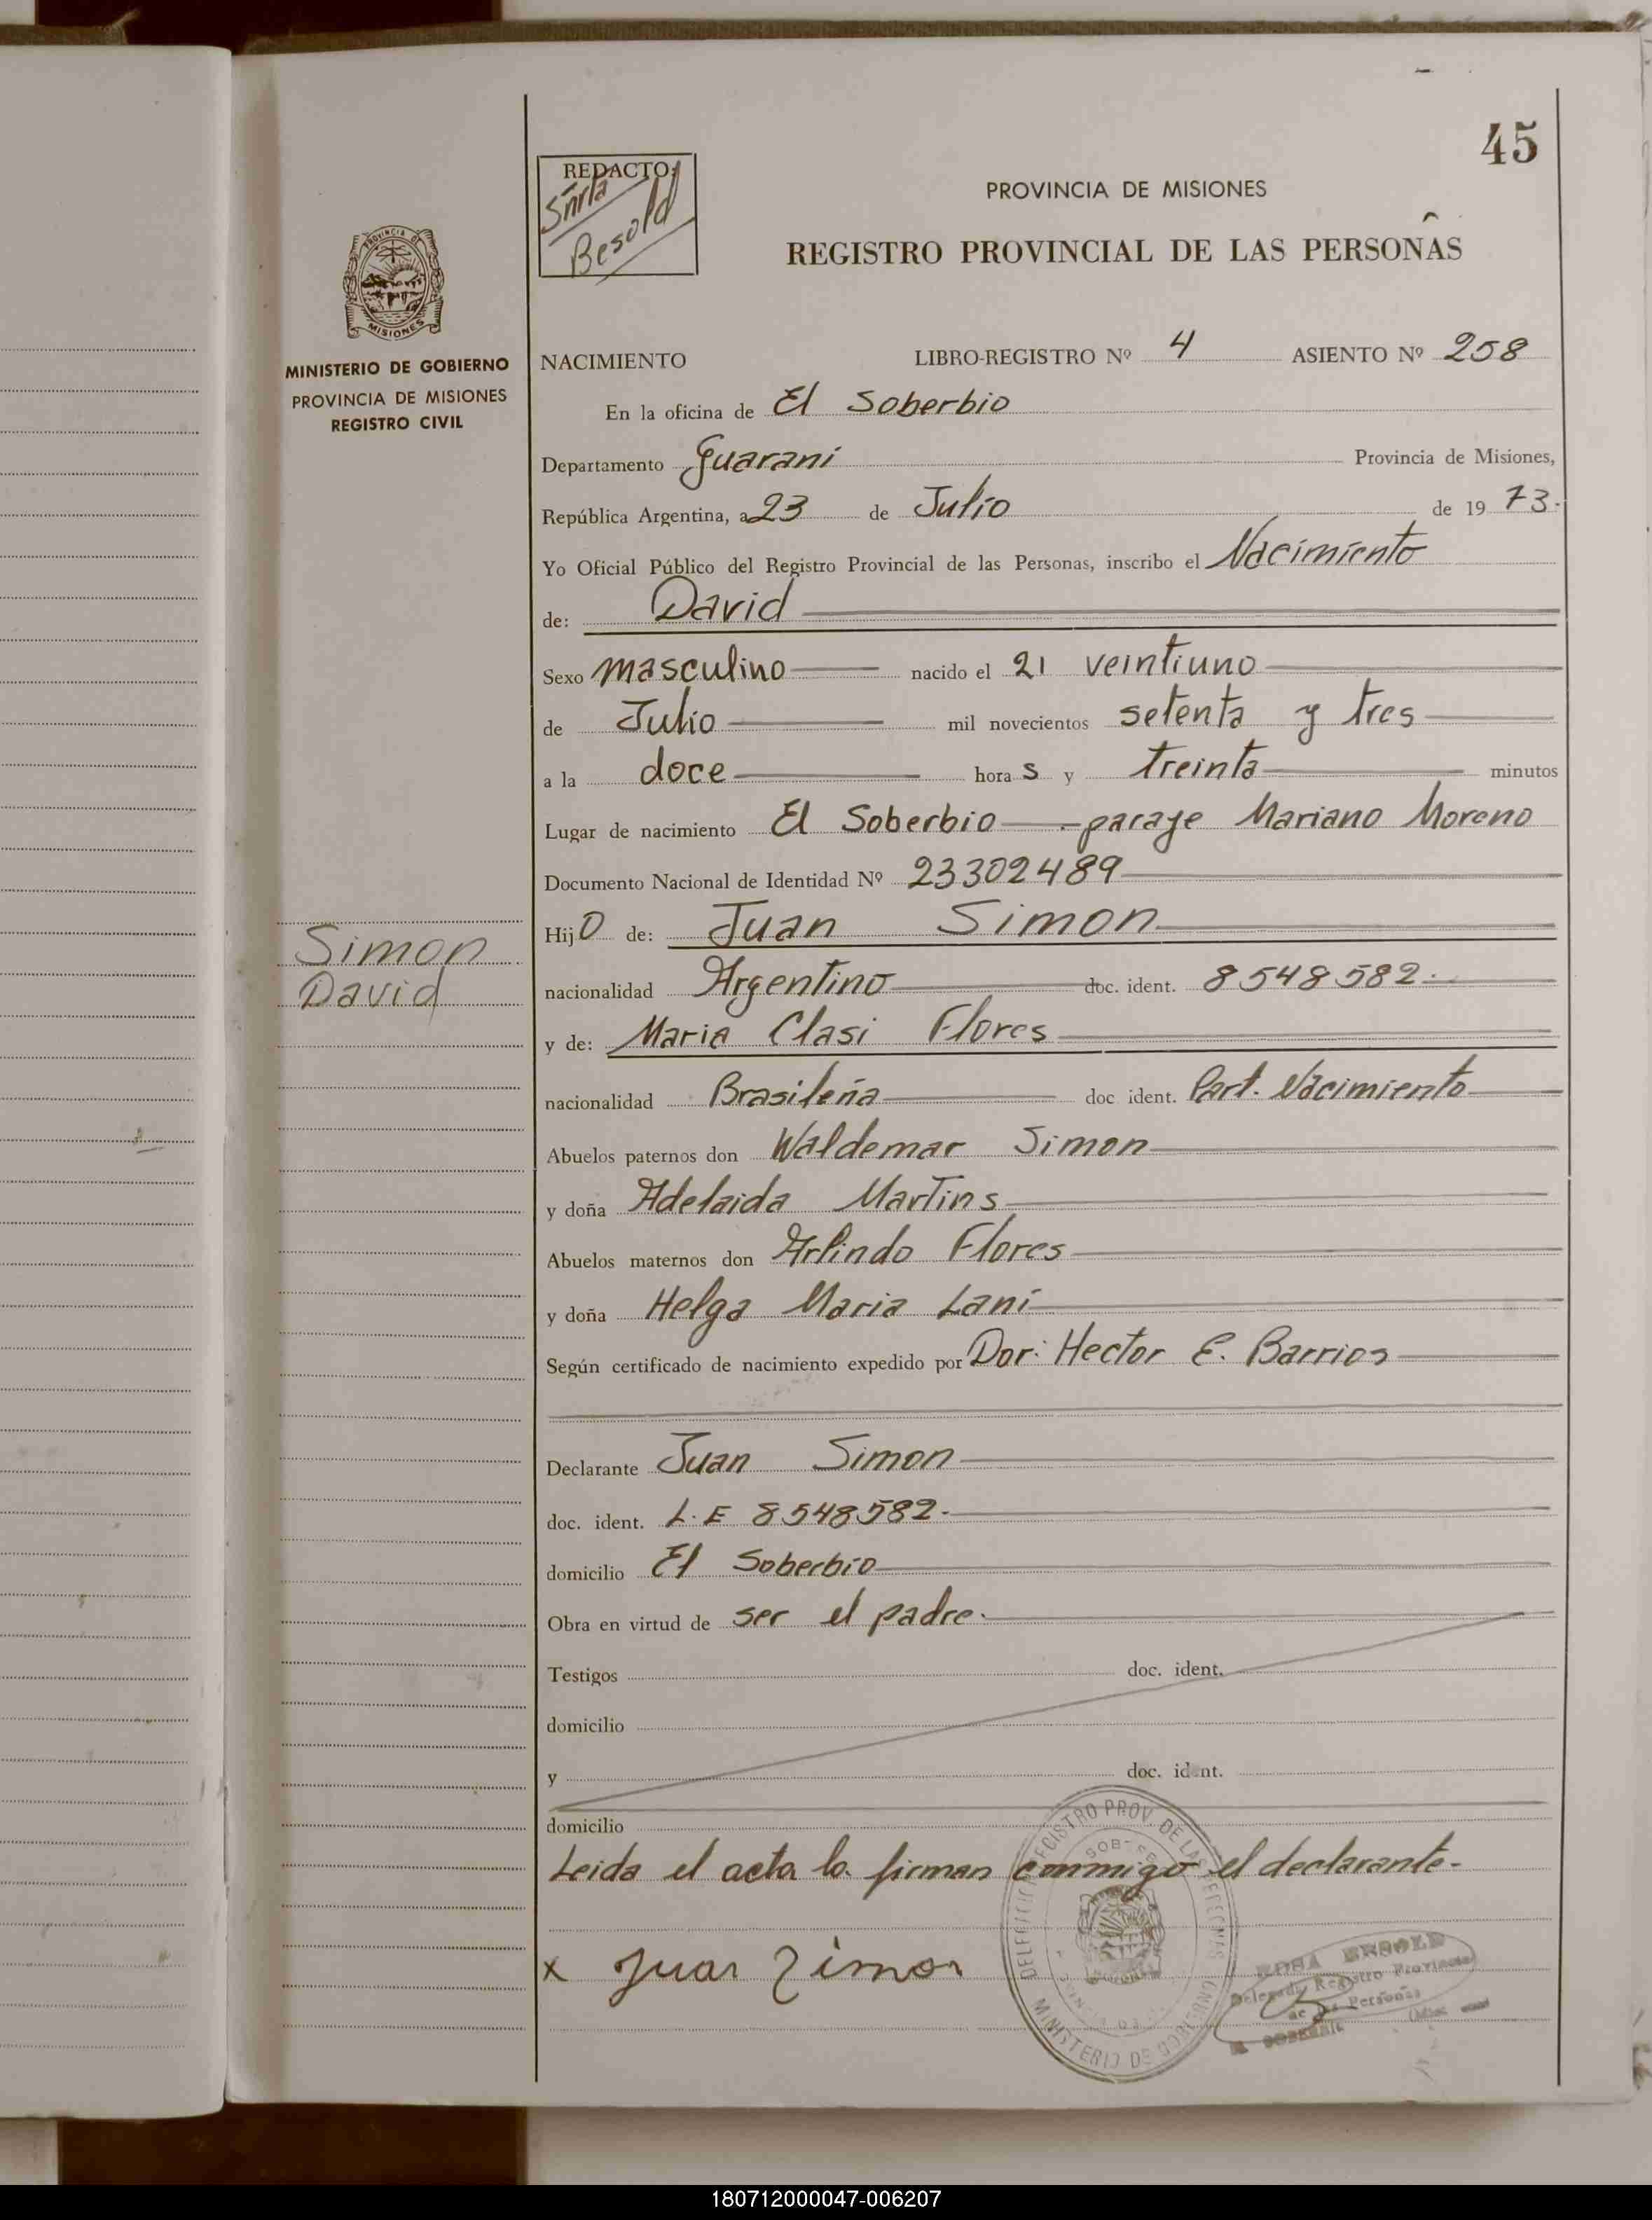 45
REDACTO:
Snrta
Besold
PROVINCIA DE MISIONES
REGISTRO PROVINCIAL DE LAS PERSONAS
PROVINCIA DE
MISIONES
MINISTERIO DE GOBIERNO
PROVINCIA DE MISIONES
REGISTRO CIVIL
NACIMIENTO LIBRO-REGISTRO Nº 4 ASIENTO Nº 258
En la oficina de El Soberbio
Departamento Guarani Provincia de Misiones,
República Argentina, a 23 de Julio de 19 73.
Yo Oficial Público del Registro Provincial de las Personas, inscribo el Nacimiento
de: David
Sexo masculino nacido el 21 veintiuno
de Julio mil novecientos setenta y tres
a la doce hora s y treinta minutos
Lugar de nacimiento El Soberbio - paraje Mariano Moreno
Documento Nacional de Identidad Nº 23302489
Hij o de: Juan Simon
Simon
David
nacionalidad Argentino doc. ident. 8548582.
y de: Maria Clasi Flores
nacionalidad Brasileña doc ident. Part. Nacimiento
Abuelos paternos don Waldemar Simon
y doña Adelaida Martins
Abuelos maternos don Arlindo Flores
y doña Helga Maria Lani
Según certificado de nacimiento expedido por Dor: Hector E. Barrios
Declarante Juan Simon
doc. ident. L.E 8548582.
domicilio El Soberbio
Obra en virtud de ser el padre.
Testigos doc. ident.
domicilio
y doc. ident.
domicilio
Leida el acta la firman conmigo el declarante-
x Juan Zimon
REGISTRO PROV. DE LAS PERSONAS
MINISTERIO DE GOBIERNO
BESOLD
Delegada Registro Provincial
de las Personas
EL SOBERBIO
180712000047-006207